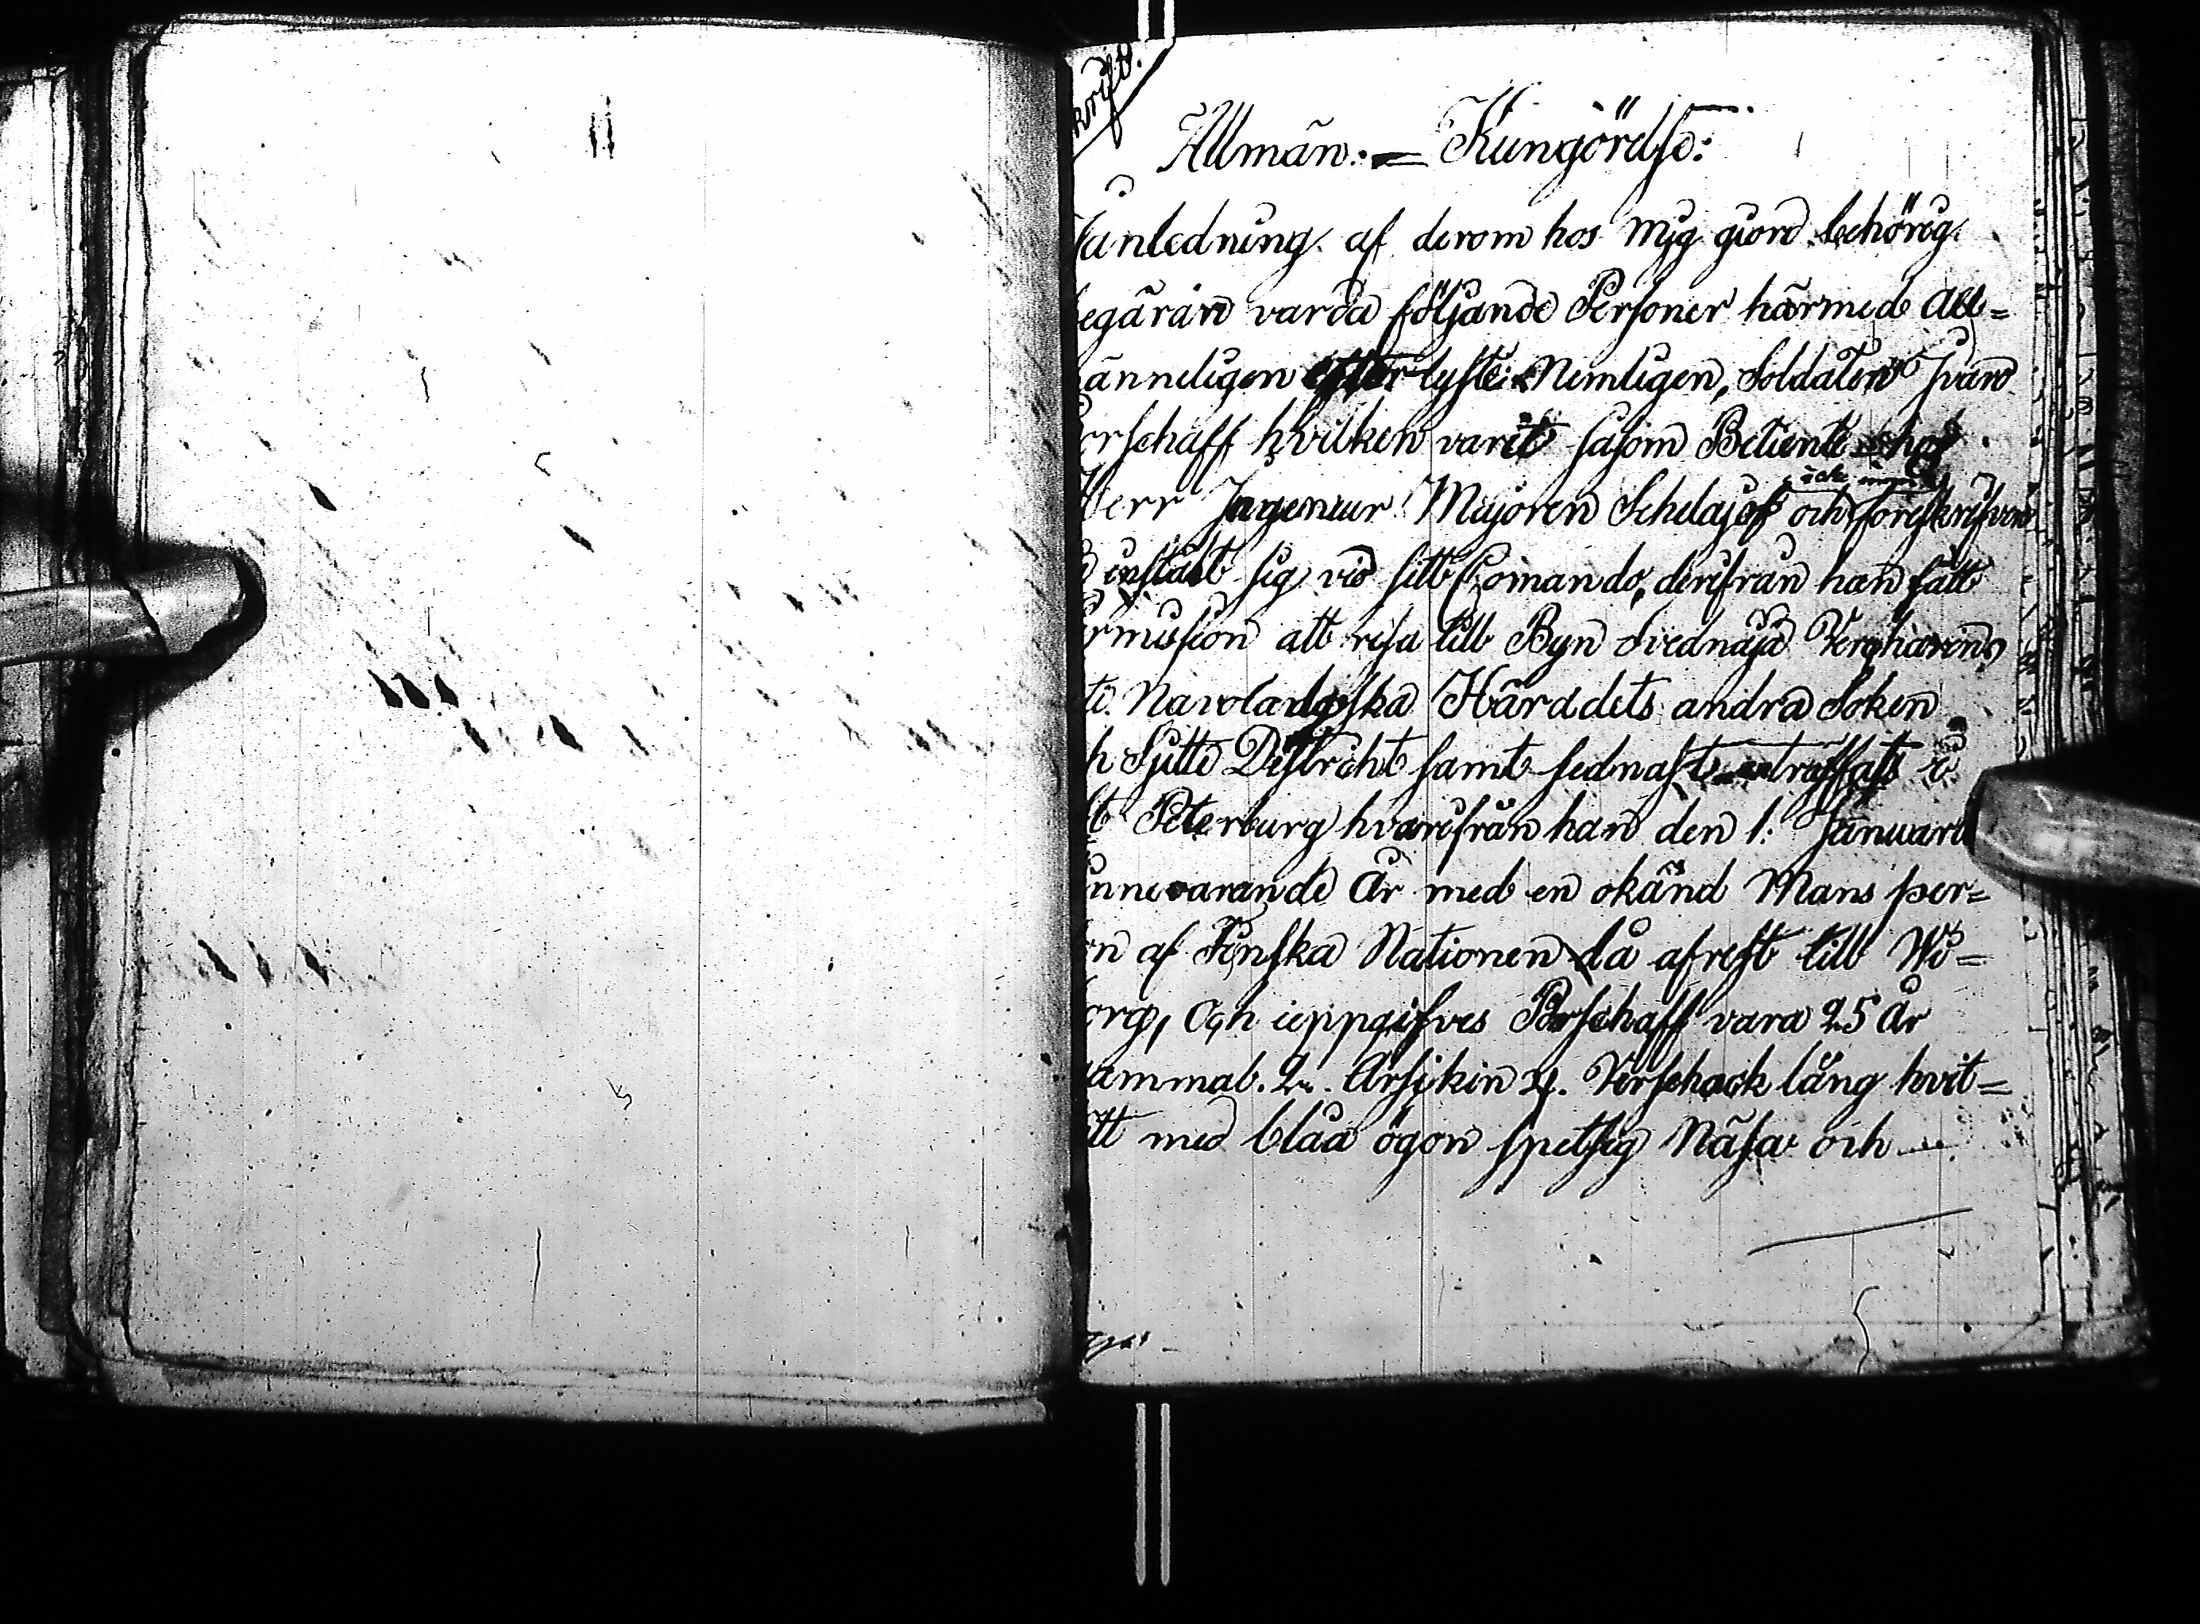 krift.
Allmän. = Kungörelse:
anledning. af derom hos Mig giord behörig.
egäran varda följande Personer härmed all=
änneligen efterlyste: Nemligen, Soldaten Ivan
orschaff hvilken varit såsom Betiente hos
Herr Ingenieur Majoren Schelajof och föreskrifven
icke
instält sig vid sitt Comando, derifrån han fått
rmission att resa till Byn
Navoladoska Häraddets andra Soken
h Sjette Districht samt sednast träffats i
t Peterburg hvarifrån han den 1: Januari
innevarande År med en okänd Mans per=
on af Finska Nationen då afrest till Wi=
org, Och uppgifves Porschaff vara 25 År
ammal. 2. Arschin 4. Verschock lång hvit=
itt med blåa ögon spetsig Näsa och